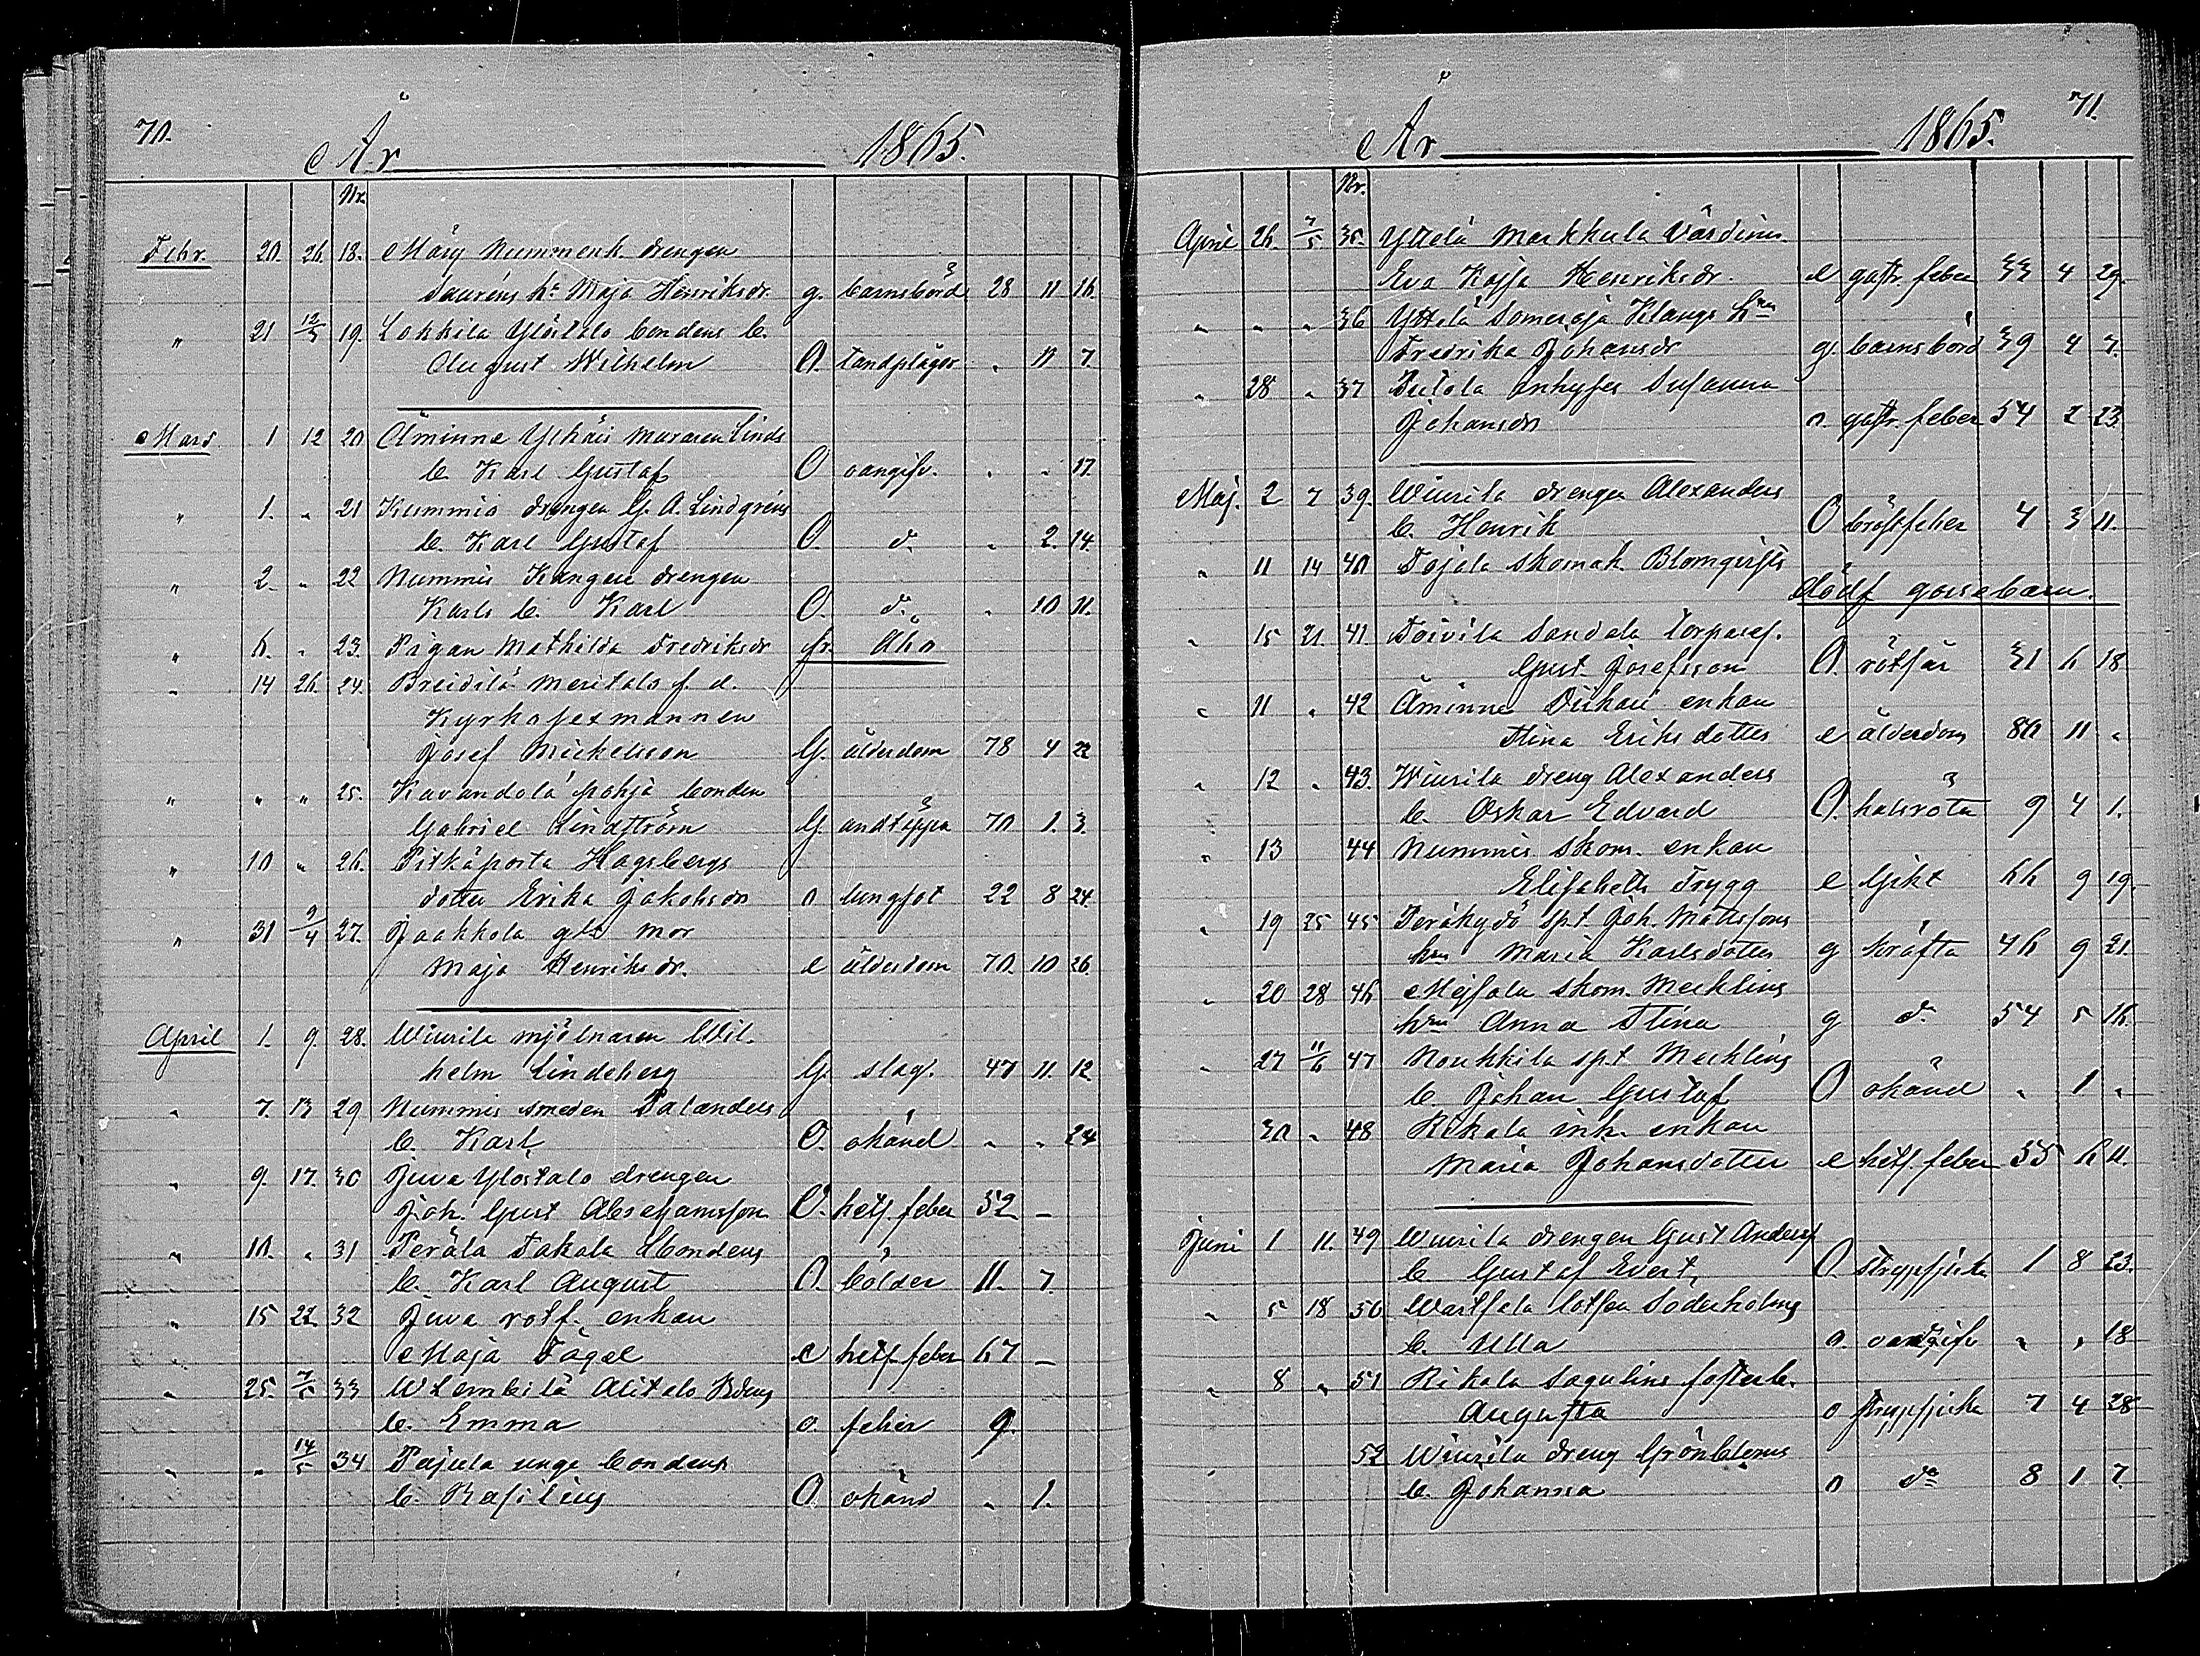 70.
År 1865.
Nr.
Febr. 20. 26. 18. Märy Nummenk. drengen
Saurens h. Maja Henriksdr g. barnsbörd 28 11 16.
" 21 12/3 19. Lokkila Ylöstalo bondens b.
August Wilhelm O. tandplågor " 11 7.
Mars 1 12 20 Åminne Ylhäis muraren Linds
b. Karl Gustaf O oangifv. " " 17.
" 1. " 21 Kummio drengen G. A. Lindgréns
b. Karl Gustaf O. d. " 2. 14.
" 2. " 22 Nummis Kangas drengen
Karls b. Karl O. d. " 10 11.
" 6. " 23. Pigan Mathilda Fredriksdr fr. Åbo
" 14 26. 24. Breidilä Meritalo f. d.
Kyrkosexmannen
Josef Mickelsson G. ålderdom 78 4 22
" " " 25. Kavandola Pohja bonden
Gabriel Lindström G. andtäppa 70 1. 3.
" 10 " 26. Pitkäporta Hagsbergs
dotter Erika Jakobsdr o lungsot 22 8 24.
" 31 9/4 27. Jaakkola gl. mor
Maja Henriksdr. e ålderdom 70. 10 26.
April 1. 9. 28. Wiurila mjölnaren Wil-
helm Lindeberg G. slag. 47 11. 12.
" 7. 13 29 Nummis smeden Palanders
b. Karl O. okänd " " 24
" 9. 17. 30 Juva Ylöstalo drengen
Joh. Gust Abrahamsson O. hets. feber 52 –
" 10. " 31 Peräla Takala Bondens
b. Karl August O. bölder 11. 7.
" 15 22. 32 Juva rotf. enkan
Maja Fågel e hets. feber 67 –
" 25. 7/5 33 Alitalo
b. Emma o. feber 9.
" " 14/5 34 Pajula unga bondens
b. Basilius O. okänd " 1.
71.
År 1865.
Nr.
April 26. 7/5 35. Yttelä Markkula Värdinn.
Eva Kajsa Henriksdr. e gastr. feber 33 4 29.
" " " 36 Yttelä Someroja Klangs hru
Fredrika Johansdr g. barnsbörd 39 4 7.
" 28 " 37 Tutola inhyses Susanna
Johansdr o. gastr. feber 54 2 23
Maj. 2 7 39. Wiurila drengen Alexanders
b. Henrik O bröstfeber 4 3 11.
" 11 14 40 Tojala skomak. Blomqvists
dödf gossebarn.
" 15 21. 41. Toivila Sandala torparef.
Gust. Josefsson O. rötsår 31 6 18
" 11 " 42 Åminne enkan
Stina Eriksdotter e ålderdom 80 11 "
" 12 " 43. Wiurila dreng Alexanders
b. Oskar Edvard O. halsröta 9 4 1.
" 13 44 Nummis skom. enkan
Elisabeth Trygg e Gikt 66 9 19.
" 19 25 45 Peräkydö spt. Joh. Mattssons
hru Maria Karlsdotter g kräfta 46 9 21.
" 20 28 46 Mejsala skom. Mecklins
hru Anna Stina g d. 54 5 16.
" 27 11/6 47 Noukkila spt Mecklins
b. Johan Gustaf O okänd " 1 "
30 " 48 Rikala inh. enkan
Maria Johansdotter e hets. feber 35 6 11.
Juni 1 11. 49 Wiurila drengen Gust Anders
b. Gustaf Evert, O. strypsjuka 1 8 23.
" 5 18 50 Wartsala lotsen Söderholms
b. Ulla o. oangifv " " 18
" 8 " 51 Rikala Sagulins fosterb.
Augusta o strypsjuka 7 4 28
" 52 Wiurila dreng Grönbloms
b. Johanna o do 8 1 7.